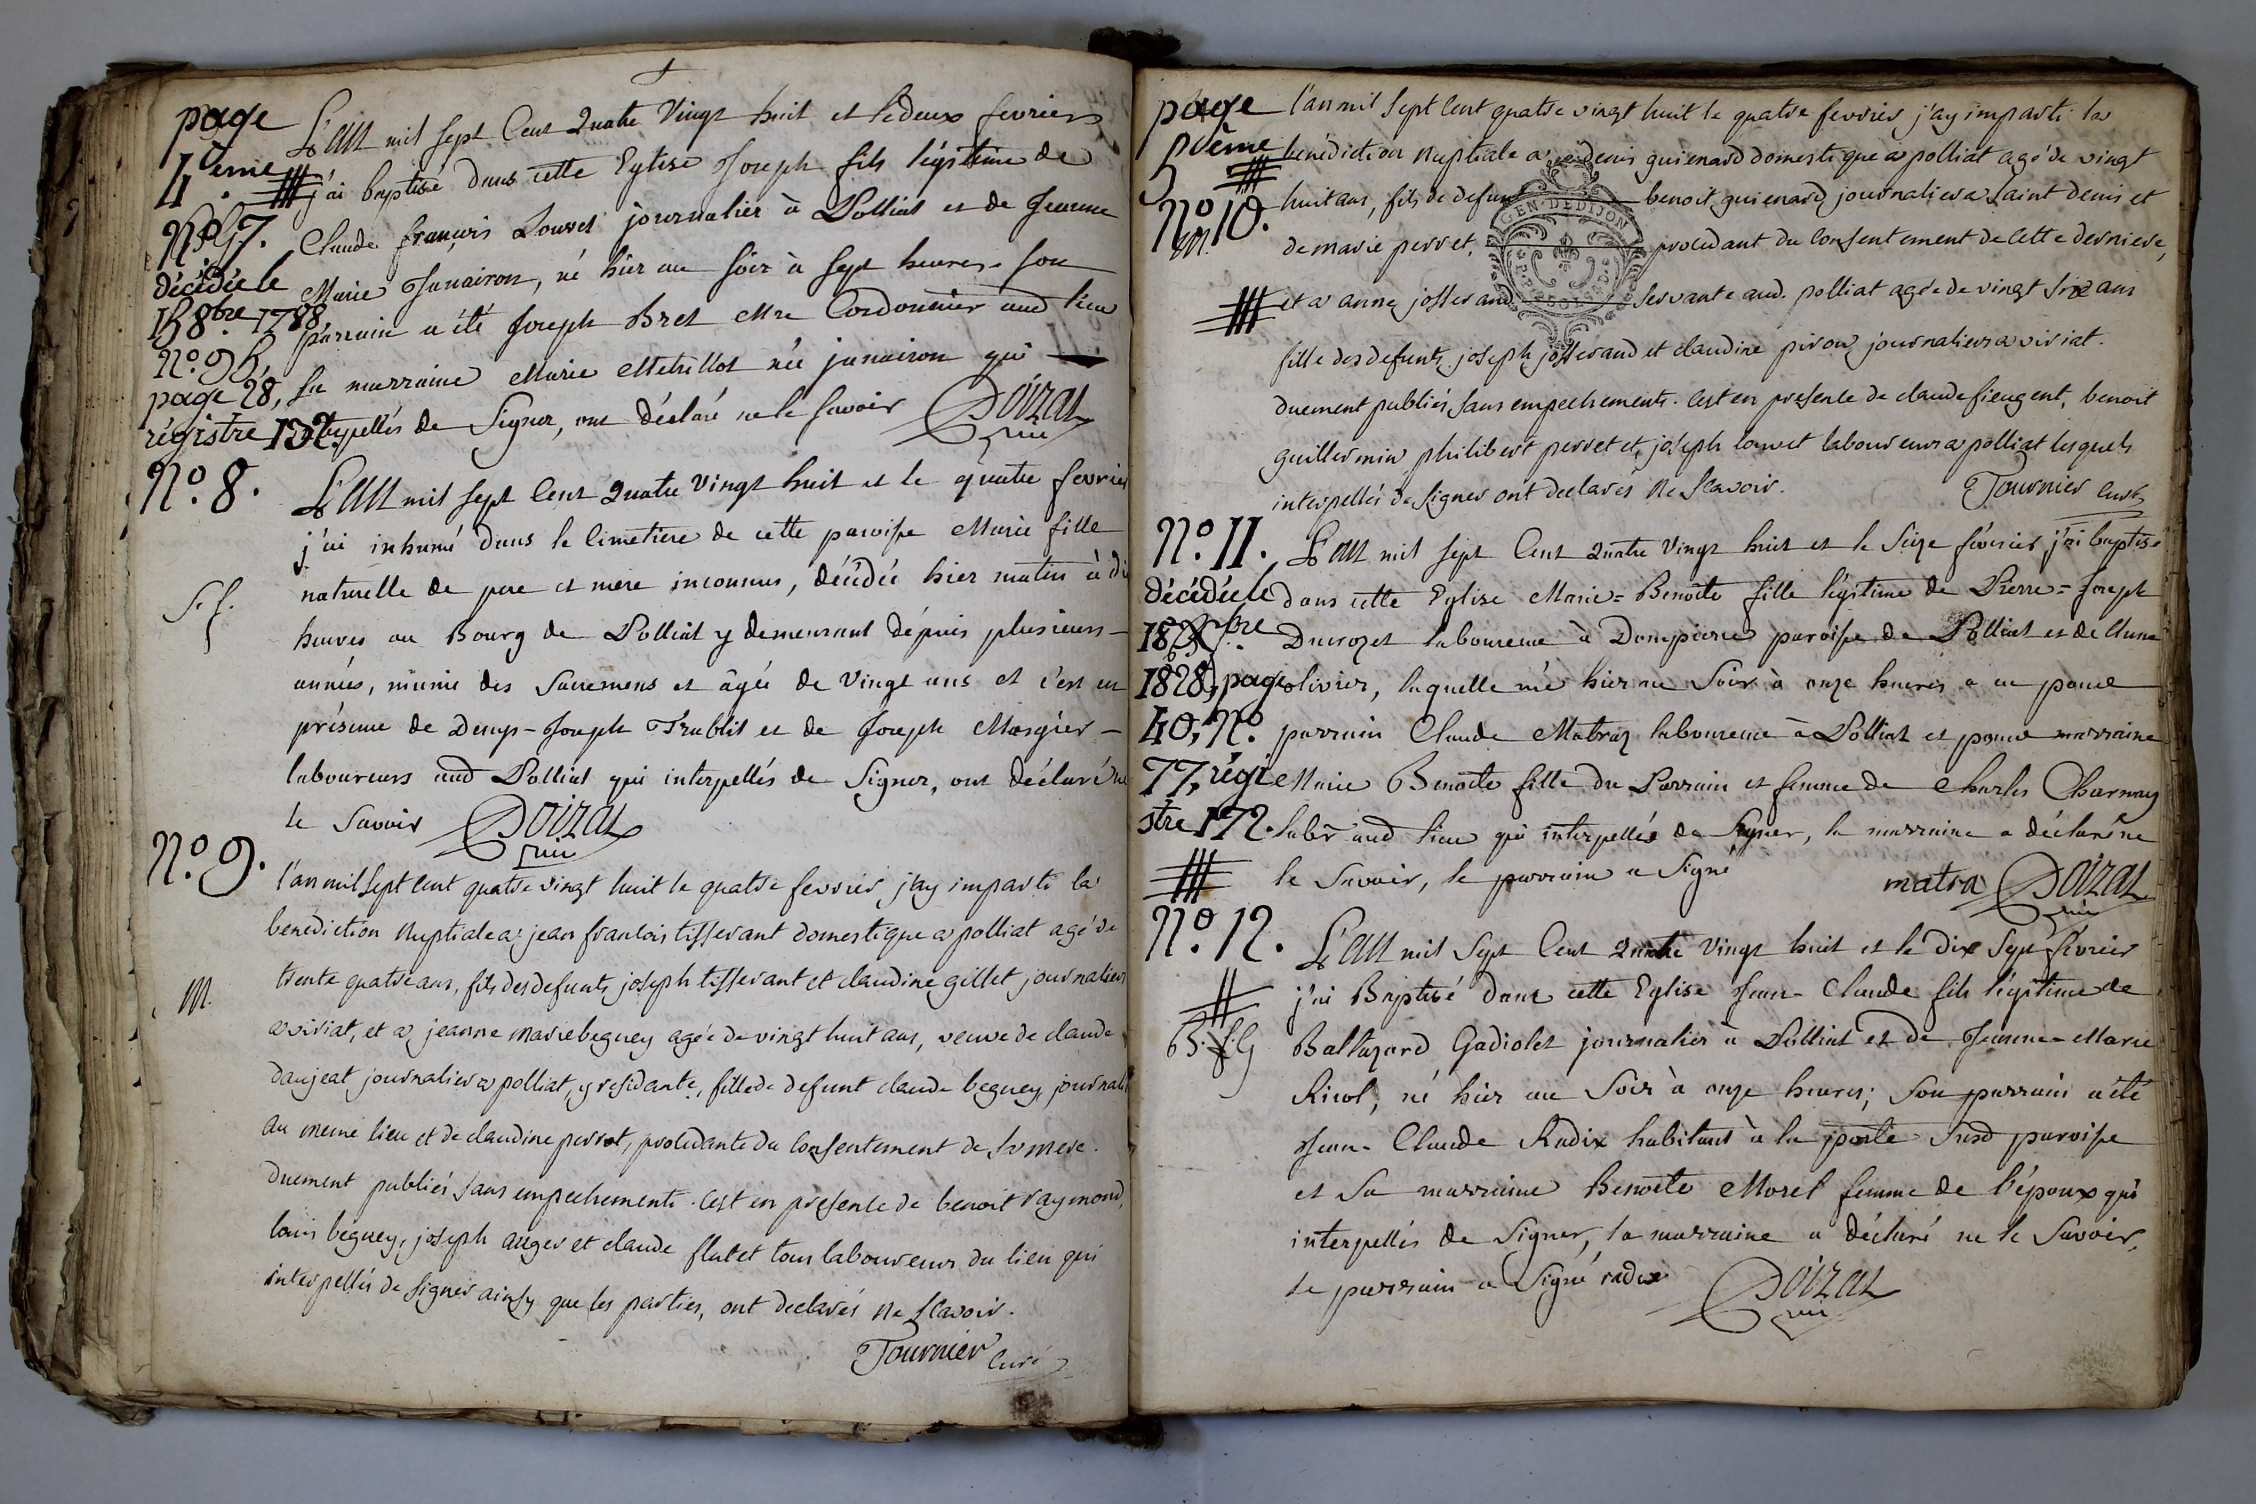 page
4ème
N° 7.
décidée le
15 8bre 1788
N° 95
page 28,
régistre 132
L'an mil sept Cent Quatre Vingt huit et le deux fevrier
j'ai baptisé dans cette Eglise Joseph fils légitime de
Claude françois Louvet journalier à Polliat et de Jeanne
Marie Janairon, né hier au soir à sept heures. son
parrain a été Joseph Bret Mre Cordonnier aud lieu
sa marraine Marie Metrillot née janairon qui
interpellés de Signer, ont déclaré ne le savoir Doizat
vic
N° 8.
S. f.
L'an mil sept Cent Quatre Vingt huit et le quatre fevrier
j'ai inhumé dans le Cimetiere de cette paroisse Marie fille
naturelle de pere et mere inconnus, décédée hier matin à dix
heures au Bourg de Polliat y demeurant dépuis plusieurs
années, munie des Sacremens et âgée de Vingt ans et c'est en
présence de Denys-Joseph Trablit et de Joseph Morgier
laboureurs aud Polliat qui interpellés de Signer, ont déclaré ne
le Savoir Doizat
vic
N° 9.
M.
l'an mil sept cent quatre vingt huit le quatre fevrier, j'ay imparti la
benediction nuptiale a jean francois tisserant domestique a polliat agé de
trente quatre ans, fils des defunts joseph tisserant et claudine gillet journaliers
a viriat, et a jeanne marie beguey agée de vingt huit ans, veuve de claude
daujeat journalier a polliat, y residante, fille de defunt claude beguey, journalier
au meme lieu et de claudine perrot, procedante du consentement de sa mere.
duement publiés sans empechements. c'est en presence de benoit raymond,
louis beguey, joseph auger et claude flutet tous laboureurs du lieu qui
interpellés de signer ainsy que les parties, ont declarés ne scavoir.
Tournier Curé
page
5vème
N° 10.
M.
l'an mil sept cent quatre vingt huit le quatre fevrier j'ay imparti la
bénédiction nuptiale a denis guienard domestique a polliat agé de vingt
huit ans, fils de defunt benoit guienard journalier a saint denis et
de marie perret, procedant du consentement de cette derniere,
et a anne josserand servante aud. polliat agée de vingt six ans
fille des defunts joseph josserand et claudine piron journaliers a viriat.
duement publiés sans empechements. c'est en presence de claude fieugent, benoit
guillermin philibert perret et joseph louvet laboureurs a polliat lesquels
interpellés de signer ont declarés ne scavoir. Tournier Curé
GEN. DE DIJON
N° 11.
décédée le
18 Xbre
1828, page
40, N°.
77, régi
stre 172.
L'an mil sept Cent Quatre Vingt huit et le Seize février j'ai baptisé
dans cette Eglise Marie=Benoîte fille légitime de Pierre=Joseph
Ducrozet laboureur à Dompierre paroisse de Polliat et de Anne
olivier, laquelle née hier au Soir à onze heures a eu pour
parrain Claude Matraz laboureur à Polliat et pour marraine
Marie Benoîte fille du Parrain et femme de Charles Charnay
labr aud lieu qui interpellés de Signer, la marraine a déclaré ne
le Savoir, le parrain a Signé matra Doizat
vic
N° 12.
B. f. G
L'an mil Sept Cent Quatre Vingt huit et le dix Sept février
j'ai Baptisé dans cette Eglise Jean-Claude fils légitime de
Baltazard Gadiolet journalier à Polliat et de Jeanne-Marie
Ricol, né hier au Soir à onze heures; Son parrain a été
Jean-Claude Radix habitant à la poste Susd paroisse
et Sa marraine Benoîte Morel femme de l'époux qui
interpellés de Signer, la marraine a déclaré ne le Savoir,
le parrain a Signé radix Doizat
vic